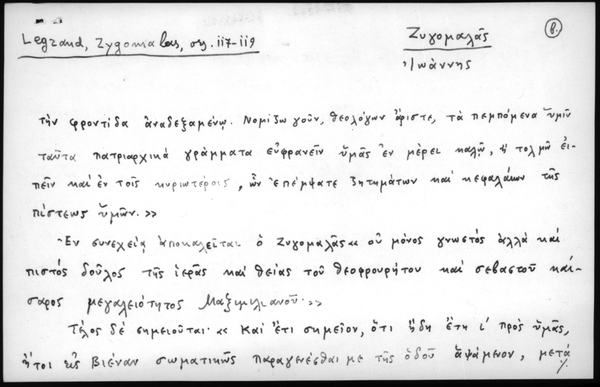 Legrand, Zygomalas, σσ. 117-119
Ζυγομαλᾶς
β.
Ἰωάννης
τὴν φροντίδα ἀναδεξαμένῳ. Νομίζω γοῦν, θεολόγων ἄριστε, τὰ πεμπόμενα ὑμῖν
ταῦτα πατριαρχικά γράμματα εὐφρανεῖν ὑμᾶς ἐν μέρει καλῷ, ἢ τολμῶ εἰ-
πεῖν καὶ ἐν τοῖς κυριωτέροις, ὧν ἐπέμψατε ζητημάτων καὶ κεφαλαίων τῆς
πίστεως ὑμῶν.»
Ἐν συνεχείᾳ ἀποκαλεῖται ὁ Ζυγομαλᾶς « οὐ μόνος γνωστός ἀλλά καί
πιστός δοῦλος τῆς ἱερᾶς καί θείας τοῦ θεοφρουρήτου καί σεβαστοῦ καί-
σαρος μεγαλειότητος Μαξιμιλιανοῦ.»
Τέλος δέ σημειοῦται· « Καί ἔτι σημεῖον, ὅτι ἤδη ἔτη ι΄ πρός ὑμᾶς,
ἤτοι εἰς Βιέναν σωματικῶς παραγενέσθαι με τῆς ὁδοῦ ἁψάμενον, μετά